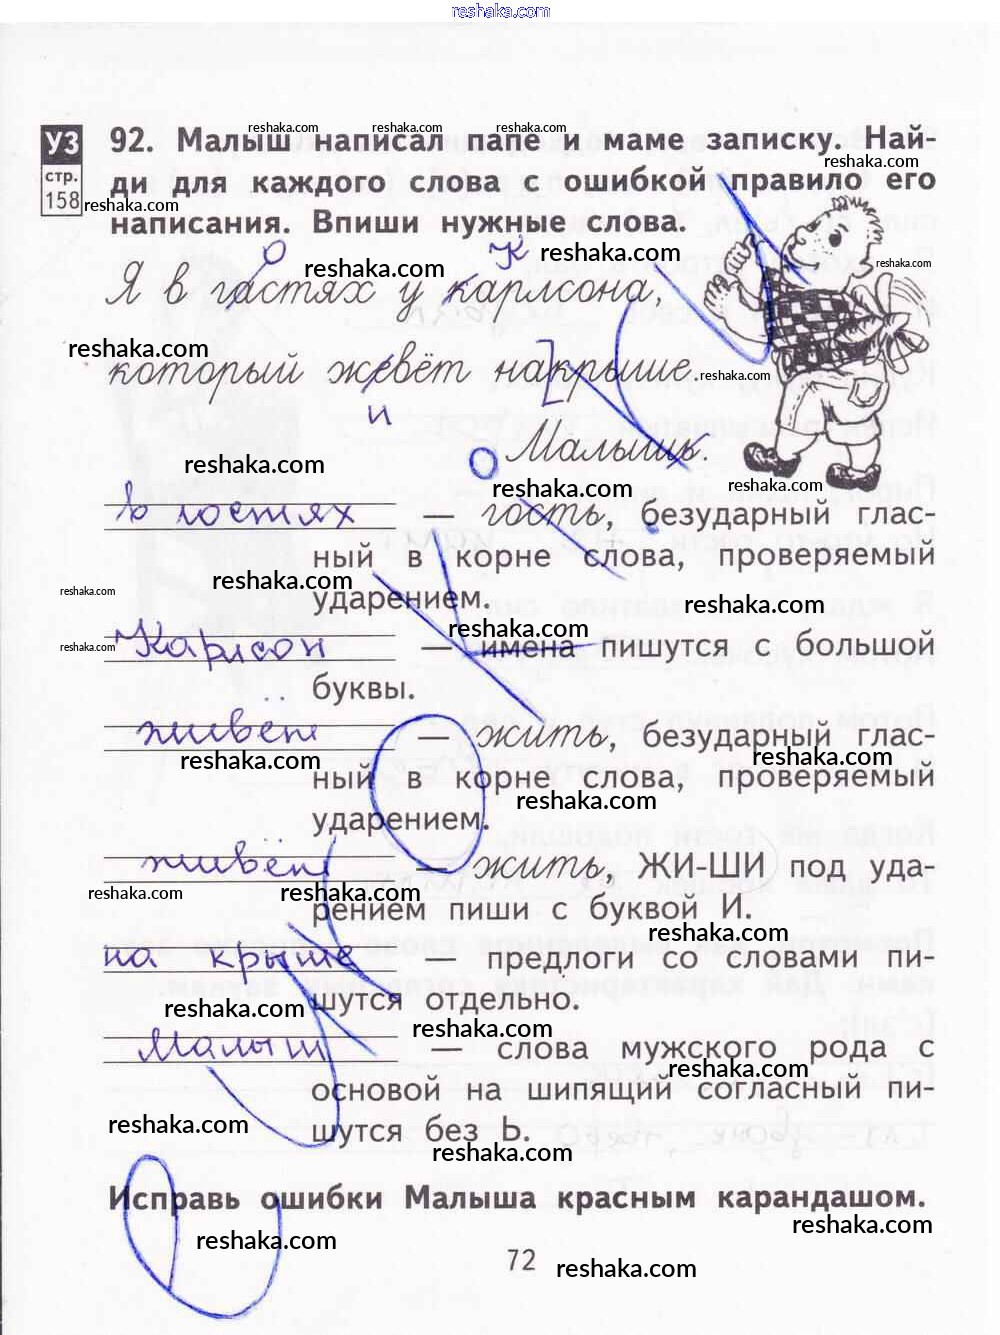 reshaka.com
УЗ
стр.
158
92. Малыш написал папе и маме записку. Най-
ди для каждого слова с ошибкой правило его
написания. Впиши нужные слова.
о К
Я в гастях у карлсона,
который жевёт накрыше.
и
Малышь.
в гостях — гость, безударный глас-
ный в корне слова, проверяемый
ударением.
Карлсон — имена пишутся с большой
буквы.
живёт — жить, безударный глас-
ный в корне слова, проверяемый
ударением.
живёт — жить, ЖИ-ШИ под уда-
рением пиши с буквой И.
на крыше — предлоги со словами пи-
шутся отдельно.
Малыш — слова мужского рода с
основой на шипящий согласный пи-
шутся без Ь.
Исправь ошибки Малыша красным карандашом.
72